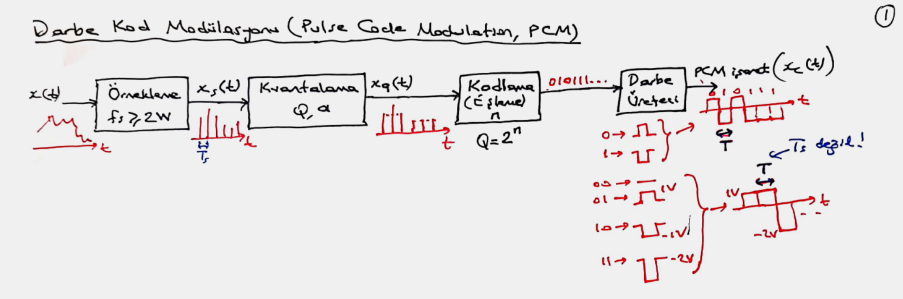 ①
Darbe Kod Modülasyonu (Pulse Code Modulation, PCM)
x(t) Örnekleme fs ≥ 2W
xs(t) Kvantalama Q, a
xq(t) Kodlama (Eşleme) n
010111...
Darbe Üreteci
PCM işaret (xc(t))
0 1 0 1 1 1
t
t
Ts
t
t
Q=2ⁿ
0→
1→
T
Ts değil!
T
00→
01→ 1V
1V
t
10→ -1V
-2V
11→ -2V